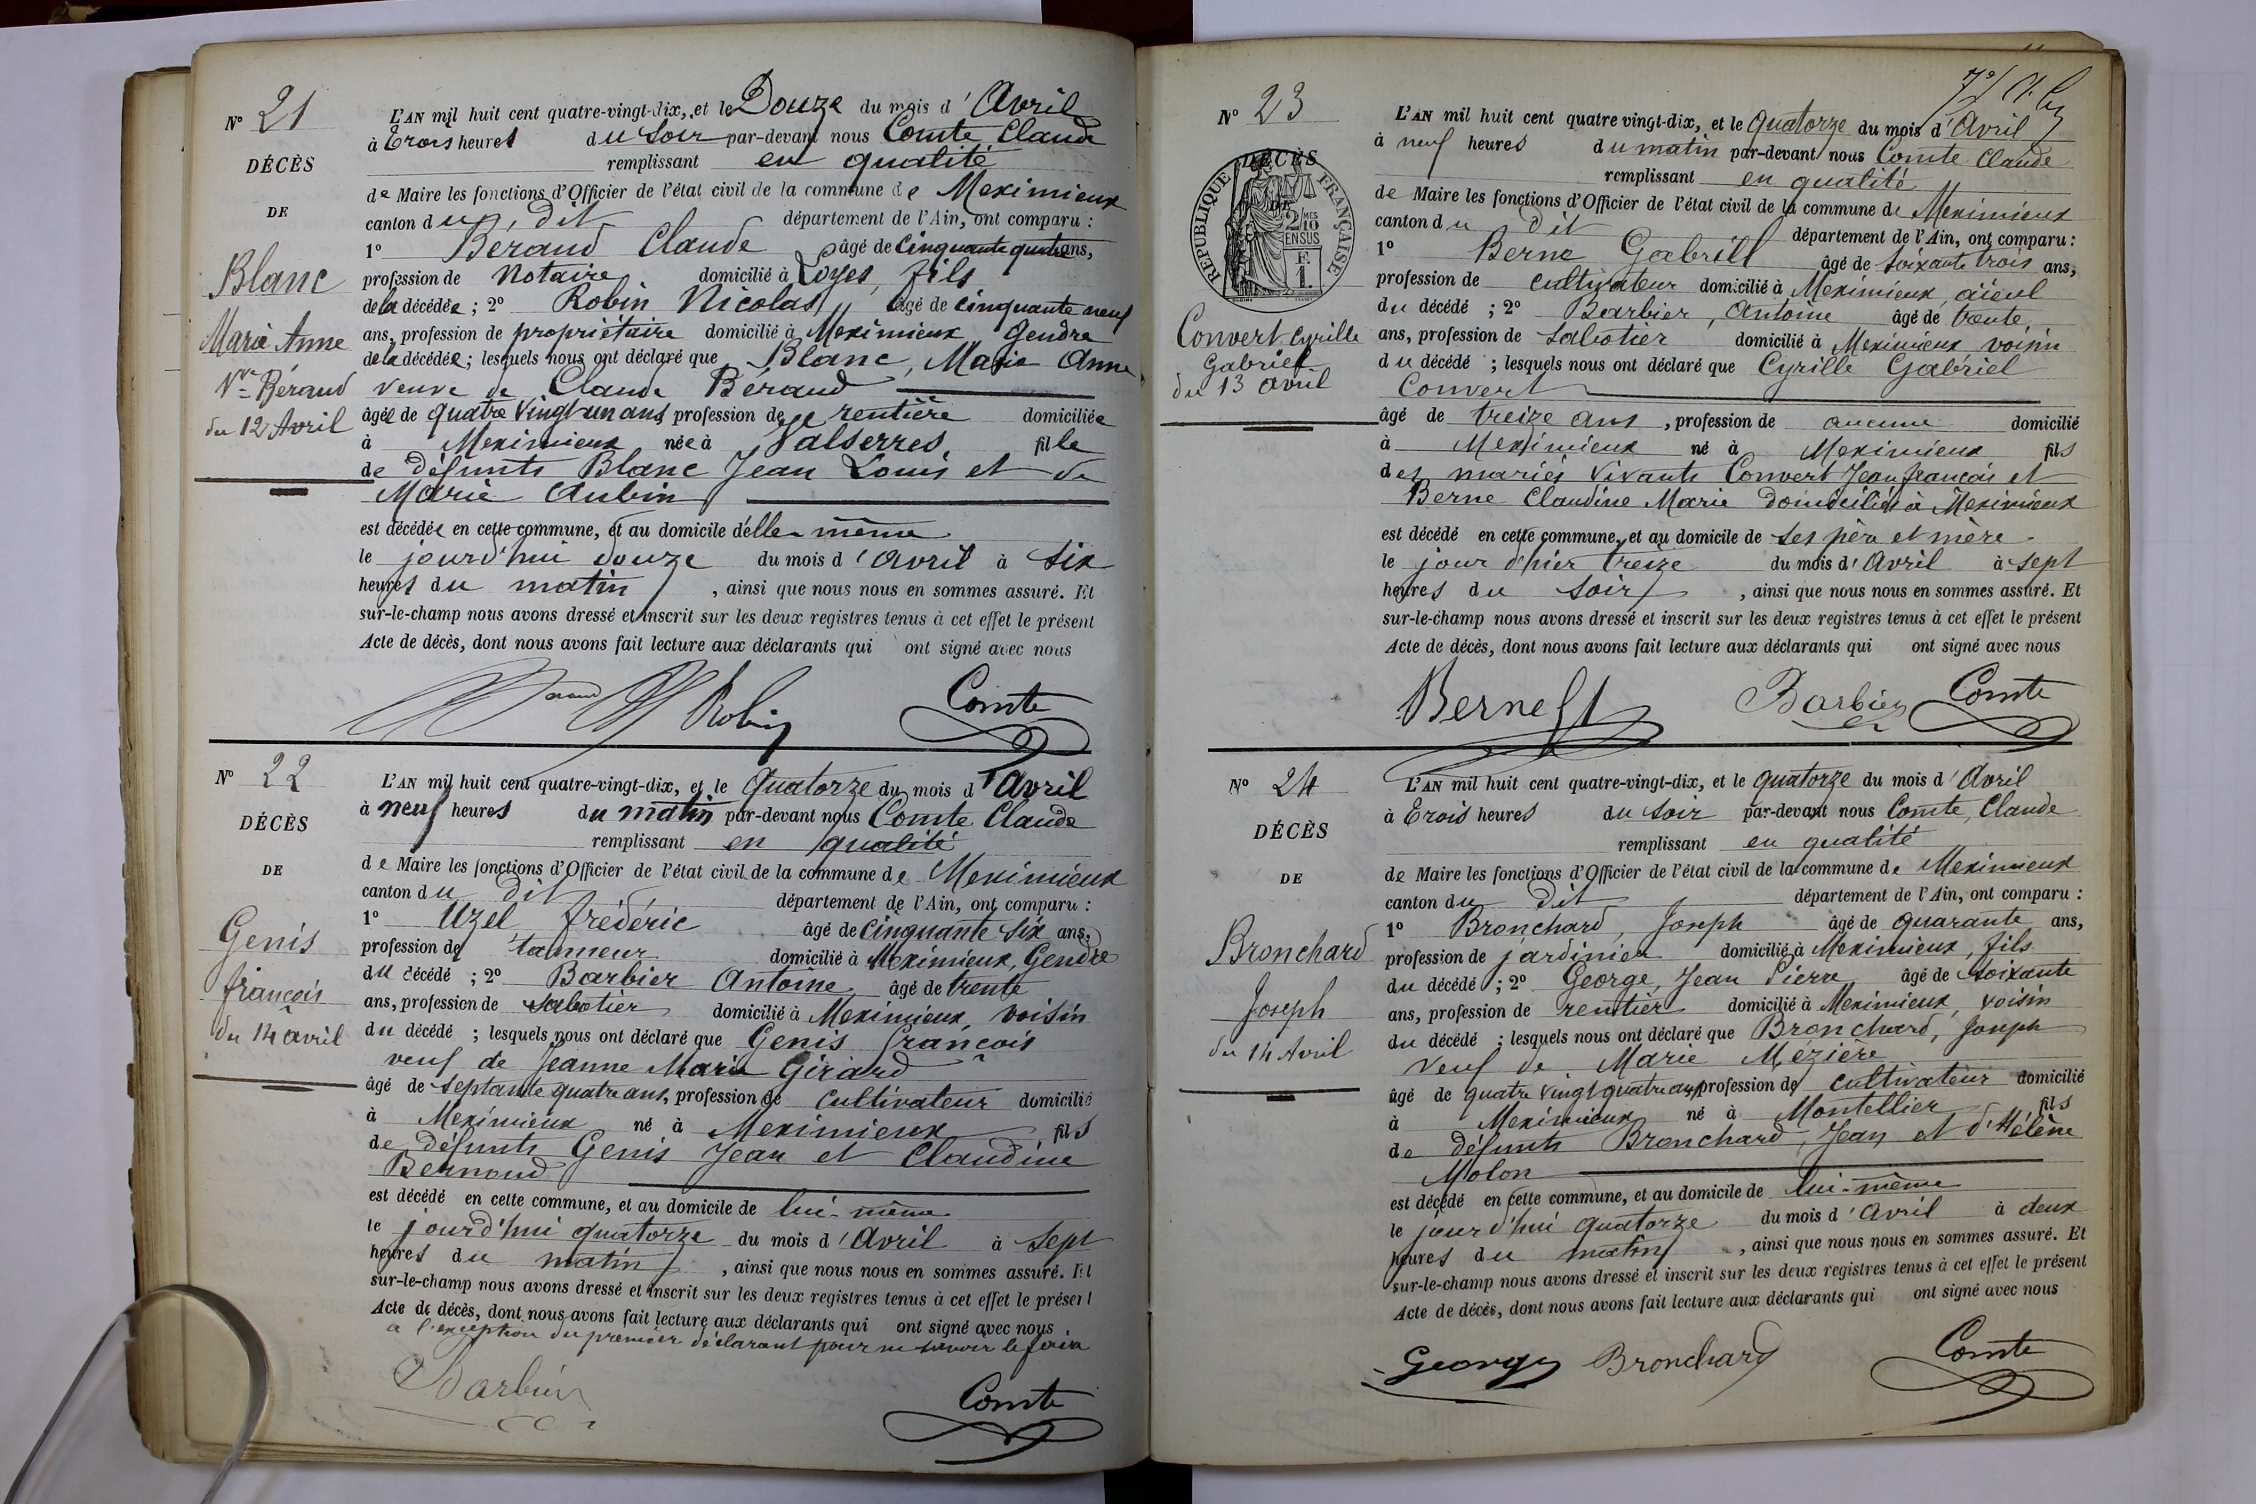 N° 21
DÉCÈS
DE
Blanc
Marie Anne
Vve Béraud
du 12 Avril
L'AN mil huit cent quatre-vingt-dix, et le Douze du mois d'Avril
à Trois heures du soir par-devant nous Comte Claude
remplissant en qualité
de Maire les fonctions d'Officier de l'état civil de la commune de Meximieux
canton du dit département de l'Ain, ont comparu :
1° Béraud Claude âgé de cinquante quatre ans,
profession de Notaire domicilié à Loyes, fils
de la décédée ; 2° Robin Nicolas, âgé de cinquante neuf
ans, profession de propriétaire domicilié à Meximieux Gendre
de la décédée ; lesquels nous ont déclaré que Blanc, Marie Anne
veuve de Claude Béraud
âgée de quatre vingt un ans, profession de rentière domiciliée
à Meximieux née à Valserres fille
de défunts Blanc Jean Louis et de
Marie Aubin
est décédée en cette commune, et au domicile d'elle-même
le jourd'hui douze du mois d'avril à six
heures du matin, ainsi que nous nous en sommes assuré. Et
sur-le-champ nous avons dressé et inscrit sur les deux registres tenus à cet effet le présent
Acte de décès, dont nous avons fait lecture aux déclarants qui ont signé avec nous
Robin Comte
N° 22
DÉCÈS
DE
Genis
françois
du 14 avril
L'AN mil huit cent quatre-vingt-dix, et le Quatorze du mois d'Avril
à neuf heures du matin par-devant nous Comte Claude
remplissant en qualité
de Maire les fonctions d'Officier de l'état civil de la commune de Meximieux
canton du dit département de l'Ain, ont comparu :
1° Uzel frédéric âgé de cinquante six ans,
profession de tanneur domicilié à Meximieux, Gendre
du décédé ; 2° Barbier Antoine âgé de trente
ans, profession de sabotier domicilié à Meximieux, voisin
du décédé ; lesquels nous ont déclaré que Genis françois
veuf de Jeanne Marie Girard
âgé de septante quatre ans, profession de cultivateur domicilié
à Meximieux né à Meximieux fils
de défunts Genis Jean et Claudine
Bernoud
est décédé en cette commune, et au domicile de lui-même
le jourd'hui quatorze du mois d'Avril à sept
heures du matin, ainsi que nous nous en sommes assuré. Et
sur-le-champ nous avons dressé et inscrit sur les deux registres tenus à cet effet le présent
Acte de décès, dont nous avons fait lecture aux déclarants qui ont signé avec nous
a l'exception du premier déclarant pour ne savoir le faire
Barbier
Comte
N° 23
DÉCÈS
DE
RÉPUBLIQUE FRANÇAISE
2/10 EN SUS
F.
1.
Convert Cyrille
Gabriel
du 13 avril
L'AN mil huit cent quatre vingt-dix, et le quatorze du mois d'Avril
à neuf heures du matin par-devant nous Comte Claude
remplissant en qualité
de Maire les fonctions d'Officier de l'état civil de la commune de Meximieux
canton du dit département de l'Ain, ont comparu :
1° Berne Gabriel âgé de soixante trois ans,
profession de cultivateur domicilié à Meximieux, aïeul
du décédé ; 2° Barbier, Antoine âgé de trente,
ans, profession de sabotier domicilié à Meximieux voisin
du décédé ; lesquels nous ont déclaré que Cyrille Gabriel
Convert
âgé de treize ans, profession de aucune domicilié
à Meximieux né à Meximieux fils
des mariés vivants Convert Jean françois et
Berne Claudine Marie domiciliés à Meximieux
est décédé en cette commune, et au domicile de ses père et mère
le jour d'hier treize du mois d'Avril à sept
heures du soir, ainsi que nous nous en sommes assuré. Et
sur-le-champ nous avons dressé et inscrit sur les deux registres tenus à cet effet le présent
Acte de décès, dont nous avons fait lecture aux déclarants qui ont signé avec nous
Berne Barbier Comte
N° 24
DÉCÈS
DE
Bronchard
Joseph
du 14 Avril
L'AN mil huit cent quatre-vingt-dix, et le quatorze du mois d'Avril
à Trois heures du soir par-devant nous Comte, Claude
remplissant en qualité
de Maire les fonctions d'Officier de l'état civil de la commune de Meximieux
canton du dit département de l'Ain, ont comparu :
1° Bronchard, Joseph âgé de quarante ans,
profession de jardinier domicilié à Meximieux, fils
du décédé ; 2° George, Jean Pierre âgé de soixante
ans, profession de rentier domicilié à Meximieux, voisin
du décédé ; lesquels nous ont déclaré que Bronchard, Joseph
veuf de Marie Mézière
âgé de quatre vingt quatre ans, profession de cultivateur domicilié
à Meximieux né à Montellier fils
de défunts Bronchard, Jean et d'Hélène
Molon
est décédé en cette commune, et au domicile de lui-même
le jourd'hui quatorze du mois d'Avril à deux
heures du matin, ainsi que nous nous en sommes assuré. Et
sur-le-champ nous avons dressé et inscrit sur les deux registres tenus à cet effet le présent
Acte de décès, dont nous avons fait lecture aux déclarants qui ont signé avec nous
George Bronchard Comte